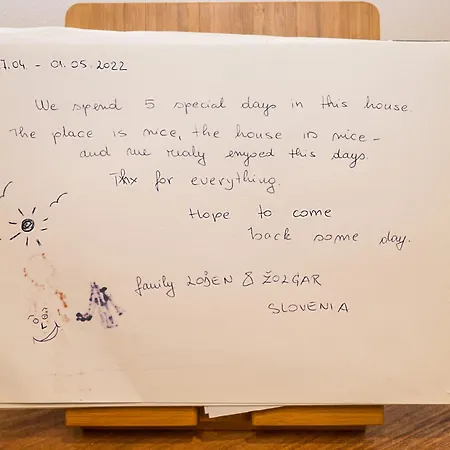 7.04 - 01.05.2022
We spend 5 special days in this house.
The place is nice, the house is nice -
and we realy enyoed this days.
Thx for everything.
Hope to come
back some day.
family & ŽOLGAR
SLOVENIA